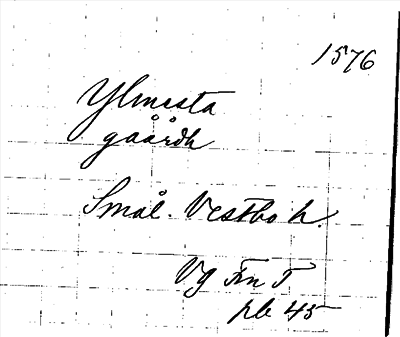 1576
Ylmesta
gåårdh
Smål. Vestbo h.
Vg Fn T
pb 45